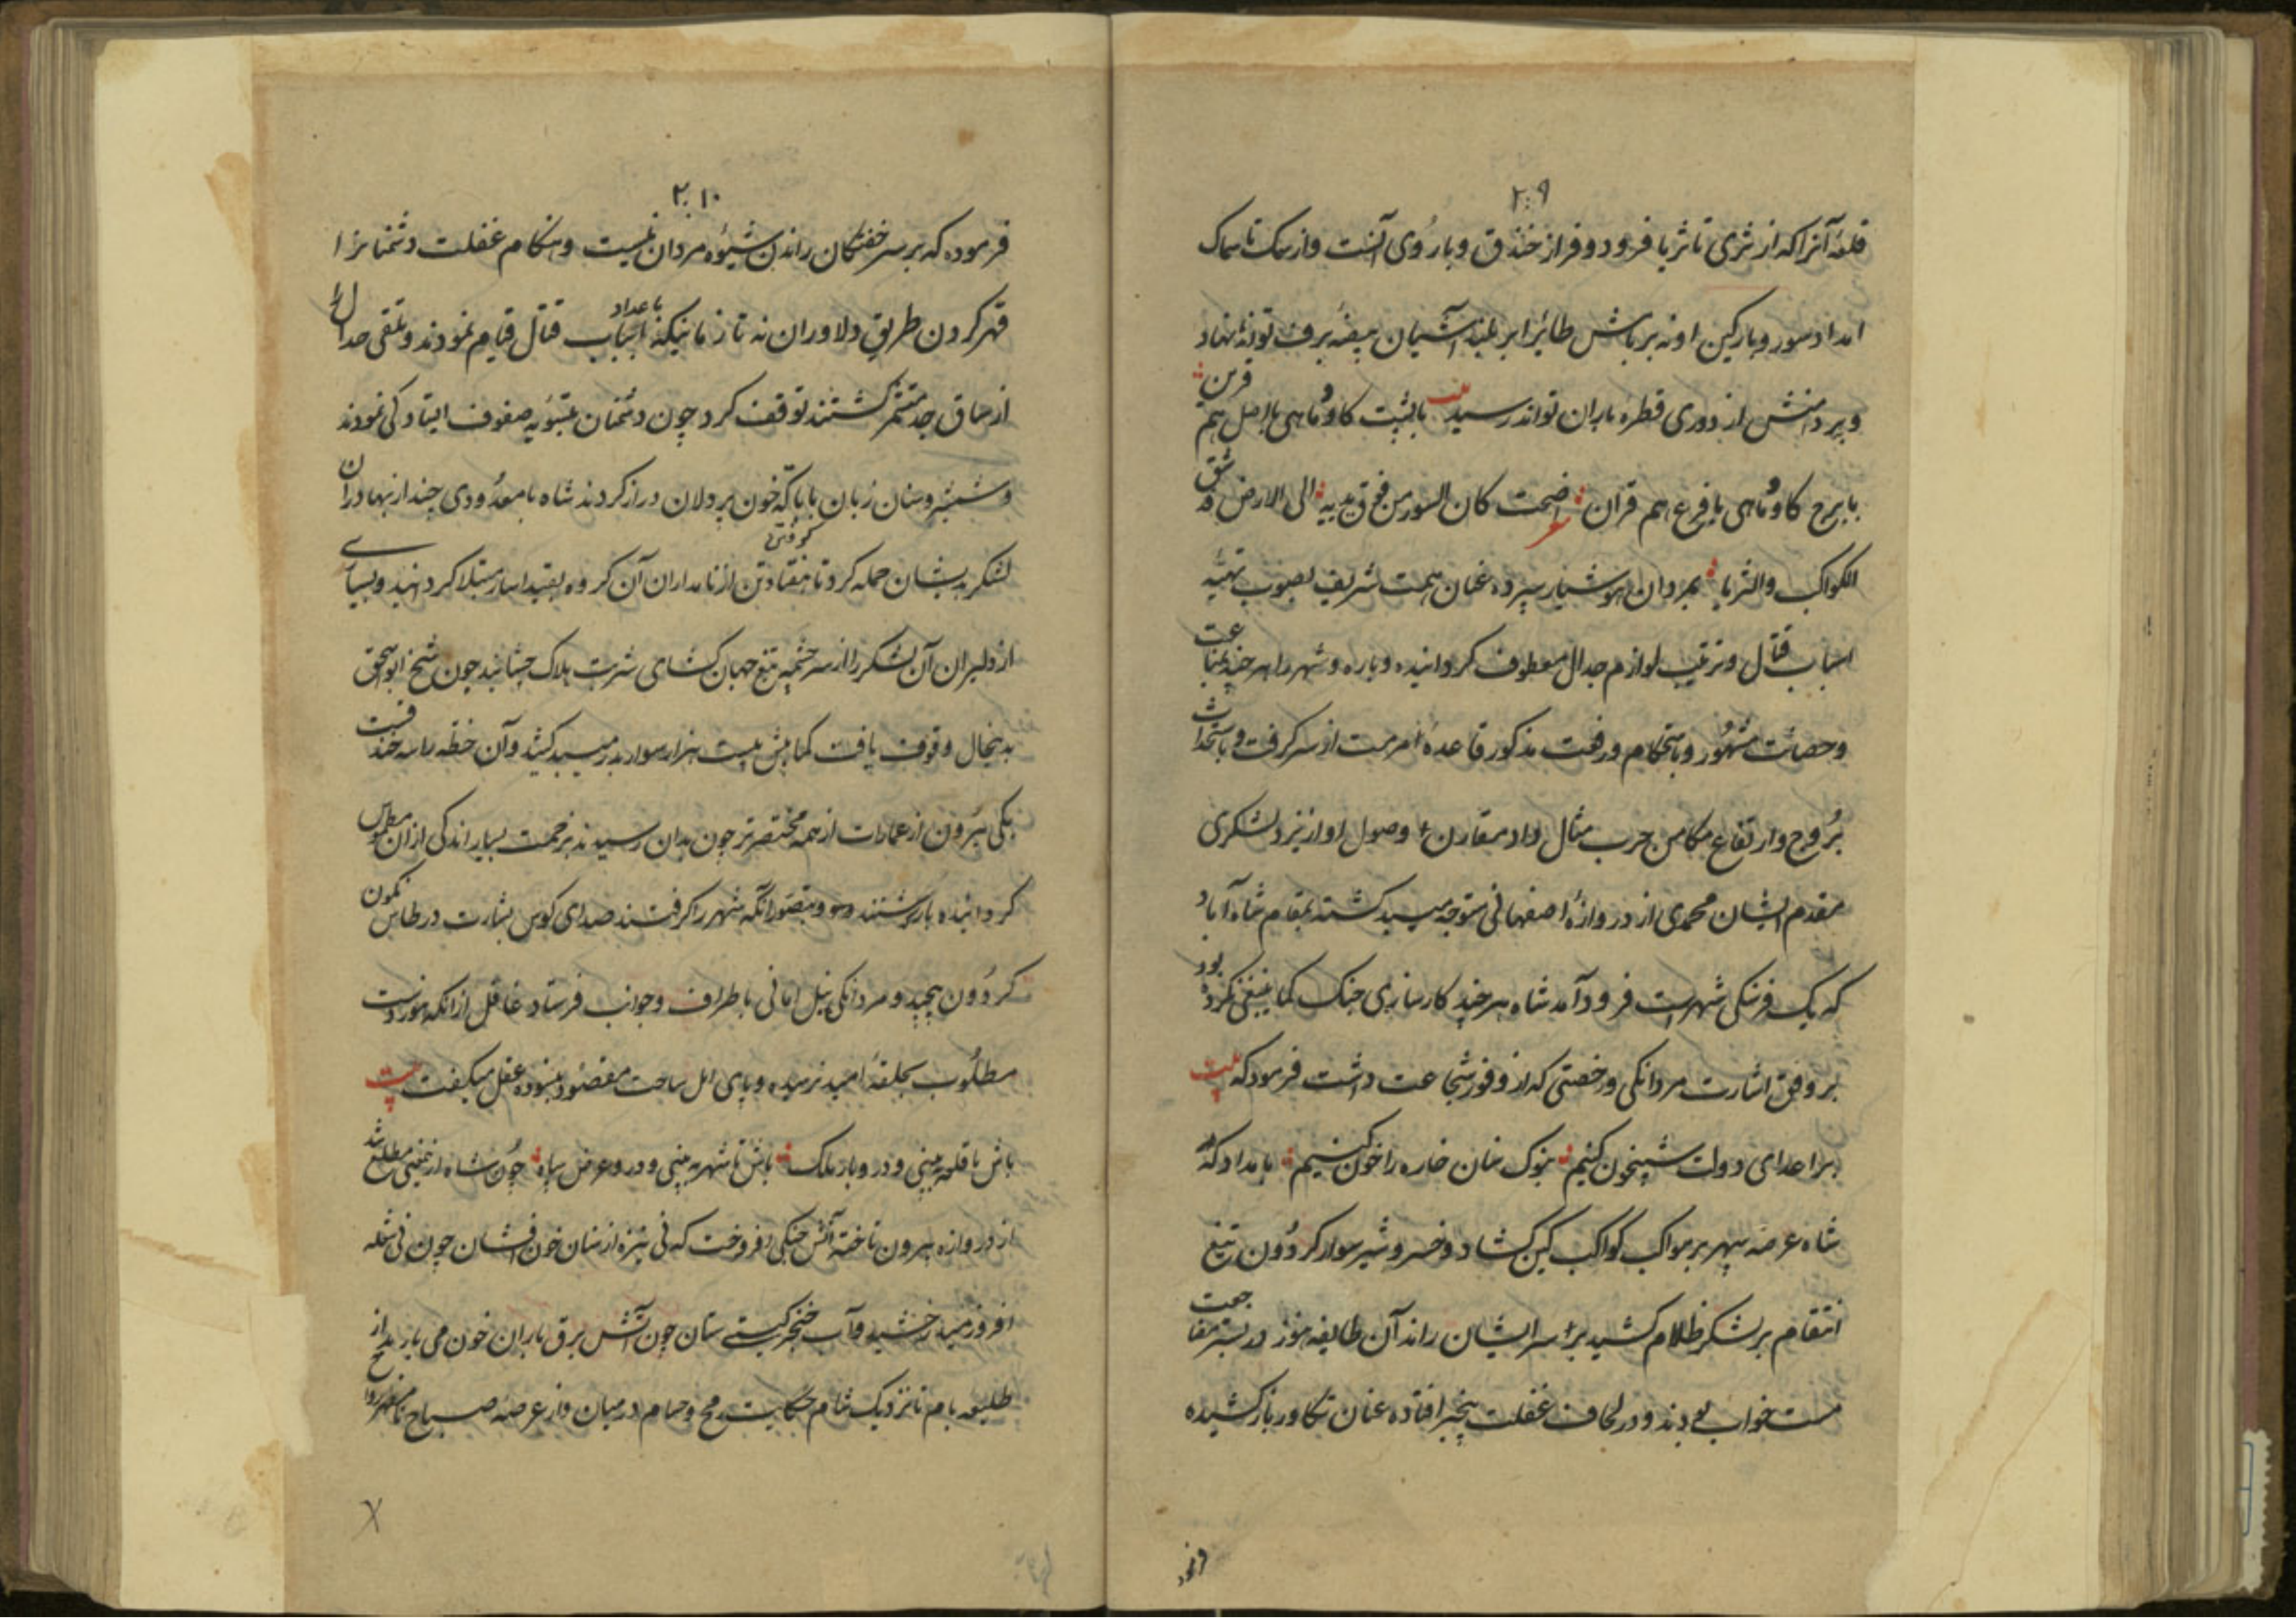 ۲۰۹
قلعهٔ آنرا که از ثری تا ثریا فرود و فراز خندق و باروی آنست و از سمک تا سماک
امداد سور و بارکین او نه بر باش طائر ابر بلند آشیان بیضهٔ برف تواند نهاد
و بر دامنش از دوری قطره باران تواند رسید بیت با پشت کاو و ماهی با اصل هم قرین
با برج کاو و ماهی با فرع هم قران اضحت کان السور من فوق بدیه الی الارض قد شق
الکواکب والثریا بمردان هوشیار سپرده عنان همت شریف بصوب تهیئه
اسباب قتال و ترتیب لوازم جدال معطوف کردانیده و باره و شهر را هر چند بمناعت
و حصانت مشهور و باستحکام و رفعت مذکور قاعدهٔ مرمت از سر کرفت و باستحداث
بروج و ارتفاع مکامن حرب مثال داد مقارن وصول او از یزد لشکری
مقدم ایشان محمدی از دروازهٔ اصفهانی متوجه میبد کشتند بمقام شاه آباد
که یک فرسنکی شهرست فرود آمد شاه هر چند کارسازی جنک کما ینبغی نکرده بود
بر وفق اشارت مردانکی و رخصتی که از وفور شجاعت داشت فرمود که بیت
بر اعدای دولت شبیخون کنیم بنوک سنان خاره را خون کنیم بامداد که
شاه عرصه سپهر بر مواکب کواکب کمین کشاد و خسرو شیر سوار کردون تیغ
انتقام بر لشکر ظلام کشید بر سر ایشان راند آن طایفه هنوز در بستر مضاجعت
مست خواب بودند و در لحاف غفلت بیخبر افتاده عنان تکاور باز کشیده
۲۱۰
فرموده که بر سر خفتکان راندن شیوهٔ مردان نیست و هنکام غفلت دشمنانرا
قهر کردن طریق دلاوران نه تا زمانیکه باعداد اسباب قتال قیام نمودند و بتلقی جدال را
از ساق جد متشمر کشتند توقف کرد چون دشمنان بتسویه صفوف ایستادکی نمودند
و شمشیر و سنان زبان با تاکه خون پردلان دراز کردند شاه با معدودی چند از بهادران
لشکر بدیشان حمله کرد تا هفتاد تن از نامداران آن کروه بقید اسار مبتلا کردانید و بسیاری
از دلیران آن لشکر را از سرچشمه تیغ جهان کشای شربت هلاک چشانید چون شیخ ابو اسحق
بدینحال وقوف یافت کمابیش بیست هزار سوار بدر میبد کشید و آن خطه را سه خندقست
یکی بیرون از عمارات از همه مختصرتر چون بدان رسیدند بزحمت بسیار اندکی از آن مطموس
کردانیده باز کشتند و بتصور آنکه شهر را کرفتند صدای کوس بشارت در طاس نکون
کردون پیچید و مردانکی نیل امانی باطراف و جوانب فرستاد غافل از آنکه هنوز دست
مطلوب بحلقهٔ امید نرسیده و پای امل ساحت مقصود نپیموده عقل میکفت بیت
باش تا قلعه بینی و در و بار ملک باش تا شهر به بینی و در و عرض سپاه چون شاه ازینمعنی مطلع شد
از دروازه بیرون تاخته آتش جنکی افروخت که نی نیزه از سنان خون افشان چون نی شعله
افروز میدرخشید و آب خنجر کیتی ستان چون آتش برق باران خون می بارید از
طلیعه بام تا نزدیک شام حکایت رمح و حسام در میان و از عرصه صباح تا